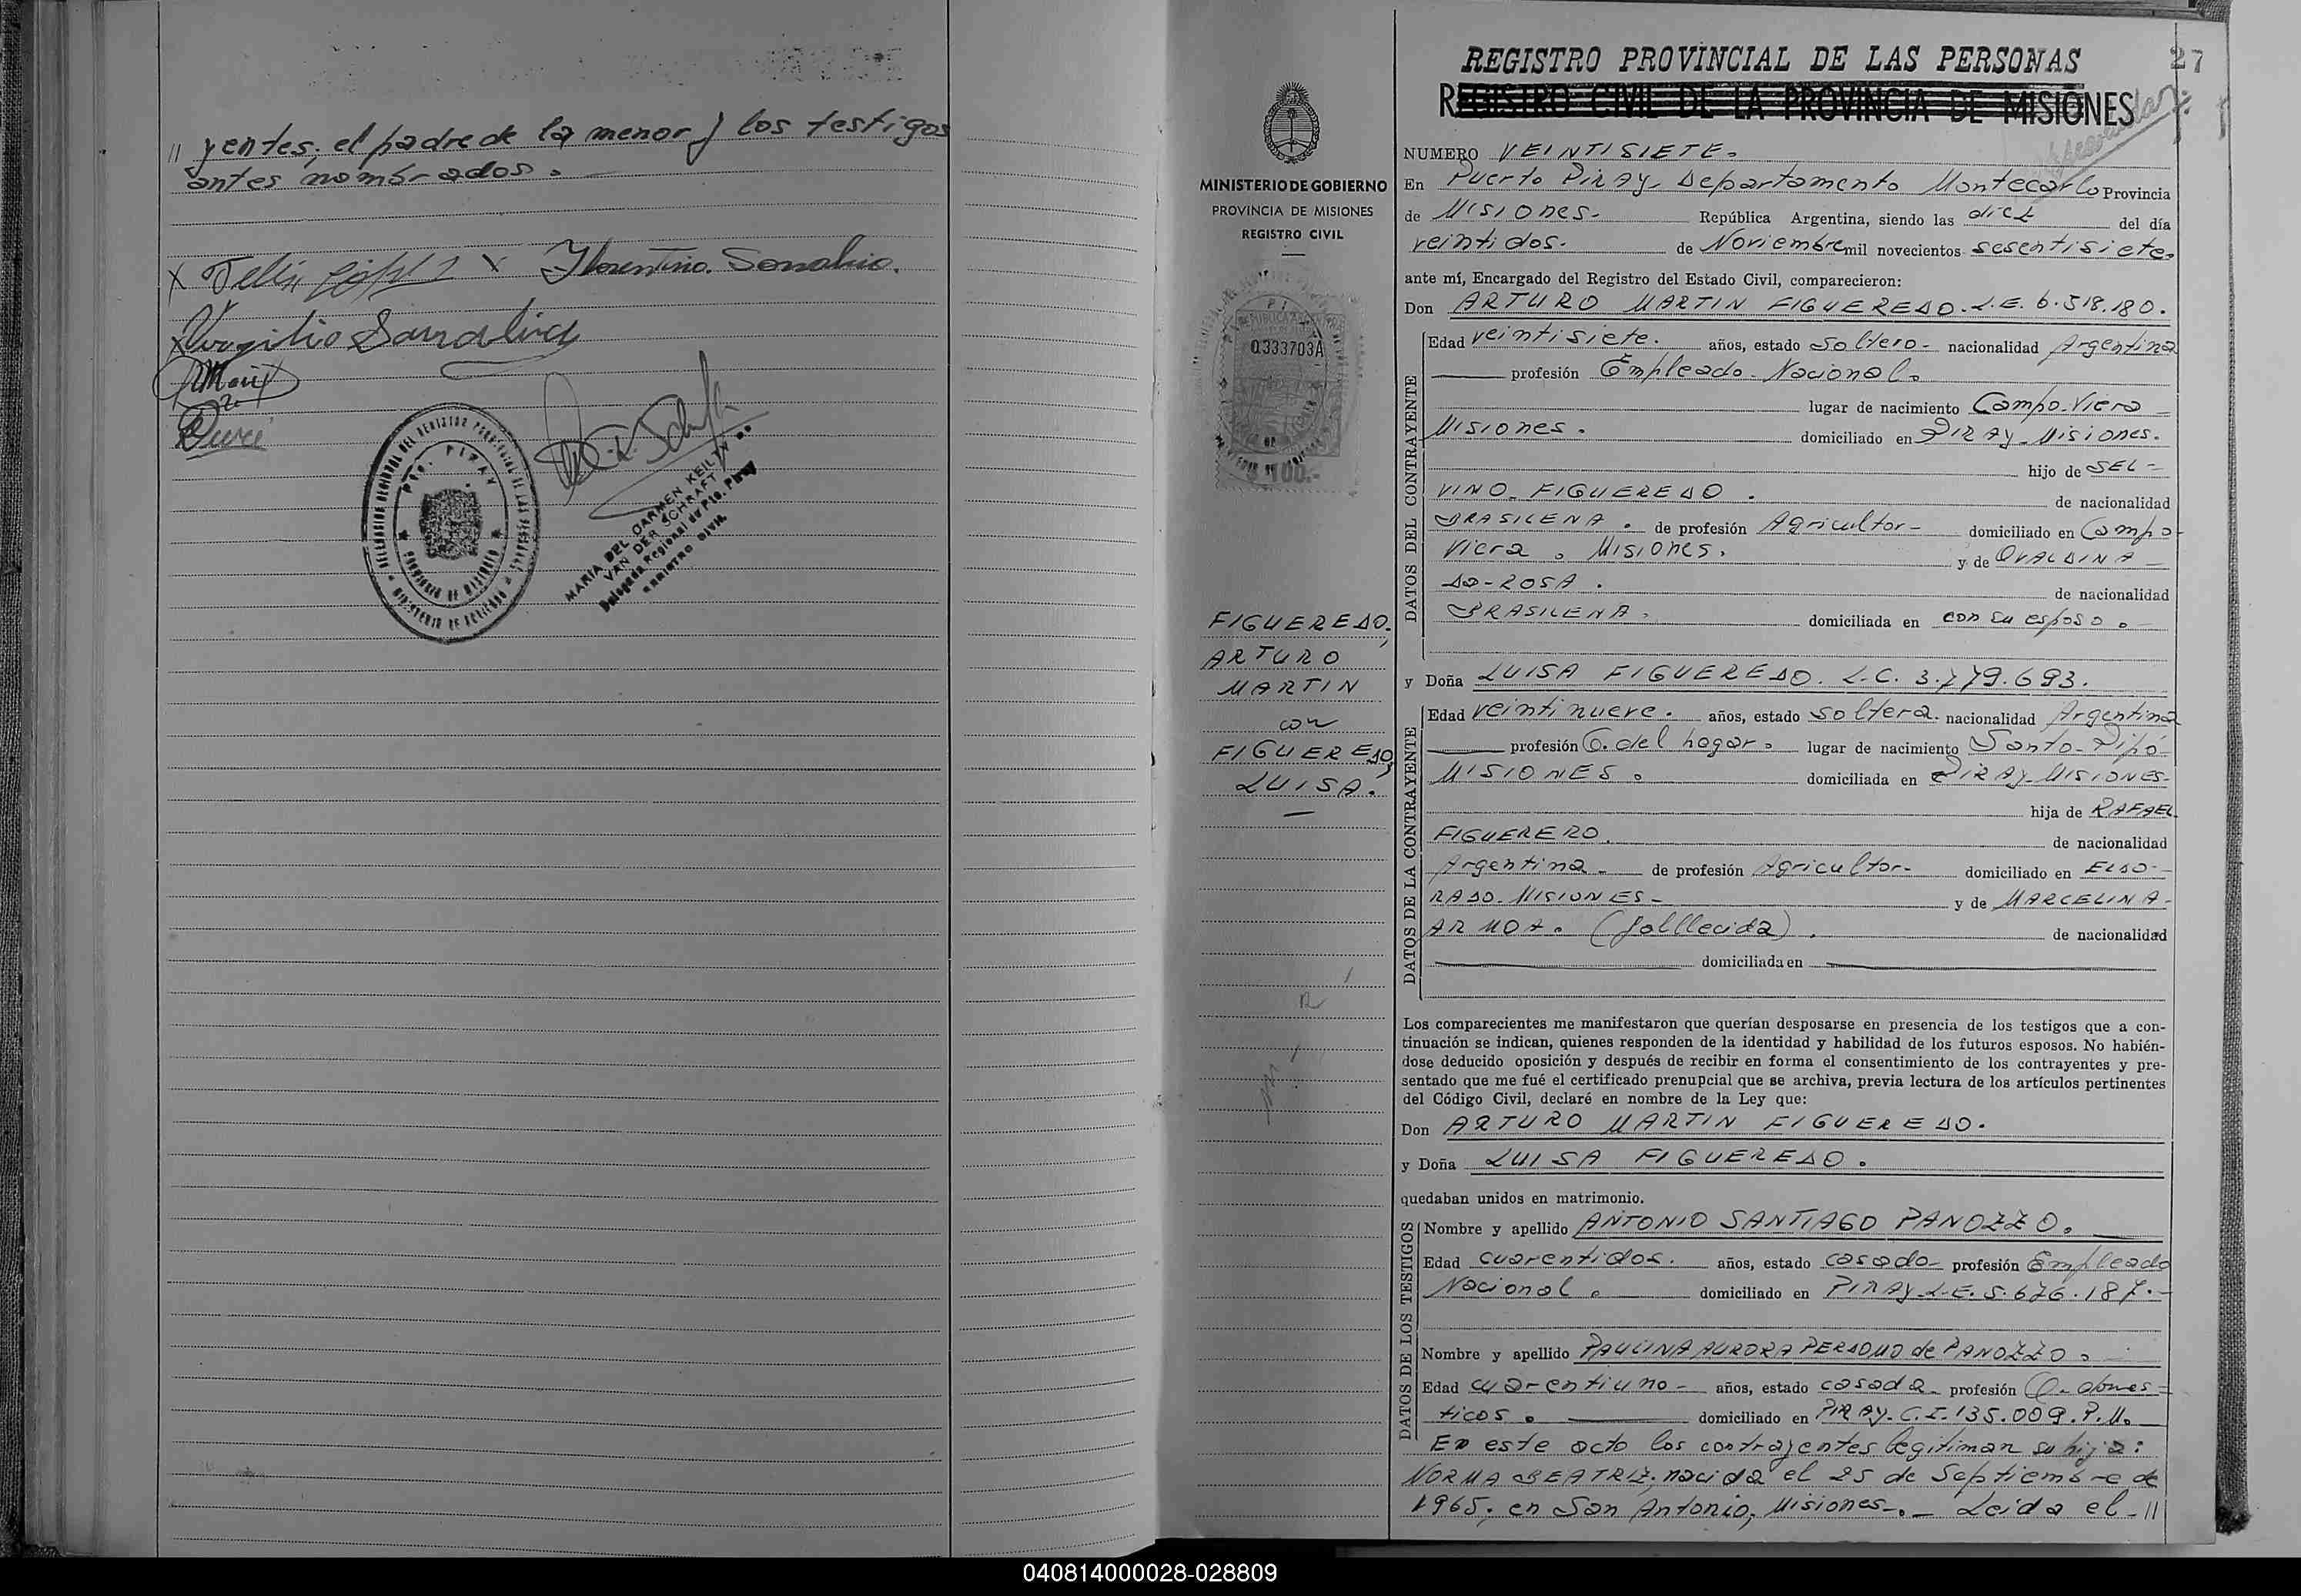 // yentes; el padre de la menor y los testigos
antes nombrados.
X Felix X Florentino. Sanabria.
X Virgilio Sanabria
DELEGACION REGIONAL DEL REGISTRO PROVINCIAL DE LAS PERSONAS
PTO. PIRAY
PROVINCIA DE MISIONES
MINISTERIO DE GOBIERNO
MARIA DEL CARMEN KEILTY DE
VAN DER SCHRAFT
Delegada Regional de Pto. Piray
REGISTRO CIVIL
27
REGISTRO PROVINCIAL DE LAS PERSONAS
REGISTRO CIVIL DE LA PROVINCIA DE MISIONES
MINISTERIO DE GOBIERNO
PROVINCIA DE MISIONES
REGISTRO CIVIL
0.333703A
100.-
FIGUEREDO,
ARTURO
MARTIN
con
FIGUEREDO,
LUISA.
NUMERO VEINTISIETE.
En Puerto Piray. Departamento Montecarlo Provincia
de Misiones. República Argentina, siendo las diez del día
veintidos. de Noviembre mil novecientos sesentisiete.
ante mí, Encargado del Registro del Estado Civil, comparecieron:
Don ARTURO MARTIN FIGUEREDO. L.E. 6.518.180.
DATOS DEL CONTRAYENTE
Edad veintisiete. años, estado soltero - nacionalidad Argentina
profesión Empleado Nacional.
lugar de nacimiento Campo Viera
Misiones. domiciliado en PIRAY. Misiones.
hijo de SEL-
VINO FIGUEREDO. de nacionalidad
BRASILENA. de profesión Agricultor - domiciliado en Campo
Viera. Misiones. y de OVALDINA
DA-ROSA. de nacionalidad
BRASILENA. domiciliada en con su esposo.
y Doña LUISA FIGUEREDO. L.C. 3.779.693.
DATOS DE LA CONTRAYENTE
Edad veintinueve. años, estado soltera. nacionalidad Argentina
profesión Q. del hogar. lugar de nacimiento Santo-Pipó
MISIONES. domiciliada en PIRAY-MISIONES-
hija de RAFAEL
FIGUERERO. de nacionalidad
Argentina - de profesión Agricultor - domiciliado en ELDO-
RADO-MISIONES- y de MARCELINA-
ARMOA. (falllecida). de nacionalidad
domiciliada en
Los comparecientes me manifestaron que querían desposarse en presencia de los testigos que a con-
tinuación se indican, quienes responden de la identidad y habilidad de los futuros esposos. No habién-
dose deducido oposición y después de recibir en forma el consentimiento de los contrayentes y pre-
sentado que me fué el certificado prenupcial que se archiva, previa lectura de los artículos pertinentes
del Código Civil, declaré en nombre de la Ley que:
Don ARTURO MARTIN FIGUEREDO.
y Doña LUISA FIGUEREDO.
quedaban unidos en matrimonio.
DATOS DE LOS TESTIGOS
Nombre y apellido ANTONIO SANTIAGO PANOZZO.
Edad cuarentidos. años, estado casado - profesión Empleado
Nacional. domiciliado en PIRAY-L.E. 5.676.187.-
Nombre y apellido PAULINA AURORA PERDOMO de PANOZZO.
Edad cuarentiuno - años, estado casada - profesión Q. domes-
ticos. domiciliado en PIRAY. C.I. 135.009. P.M.
En este acto los contrayentes legitiman su hija:
NORMA BEATRIZ, nacida el 25 de Septiembre de
1965; en San Antonio, Misiones.- Leida el //
040814000028-028809